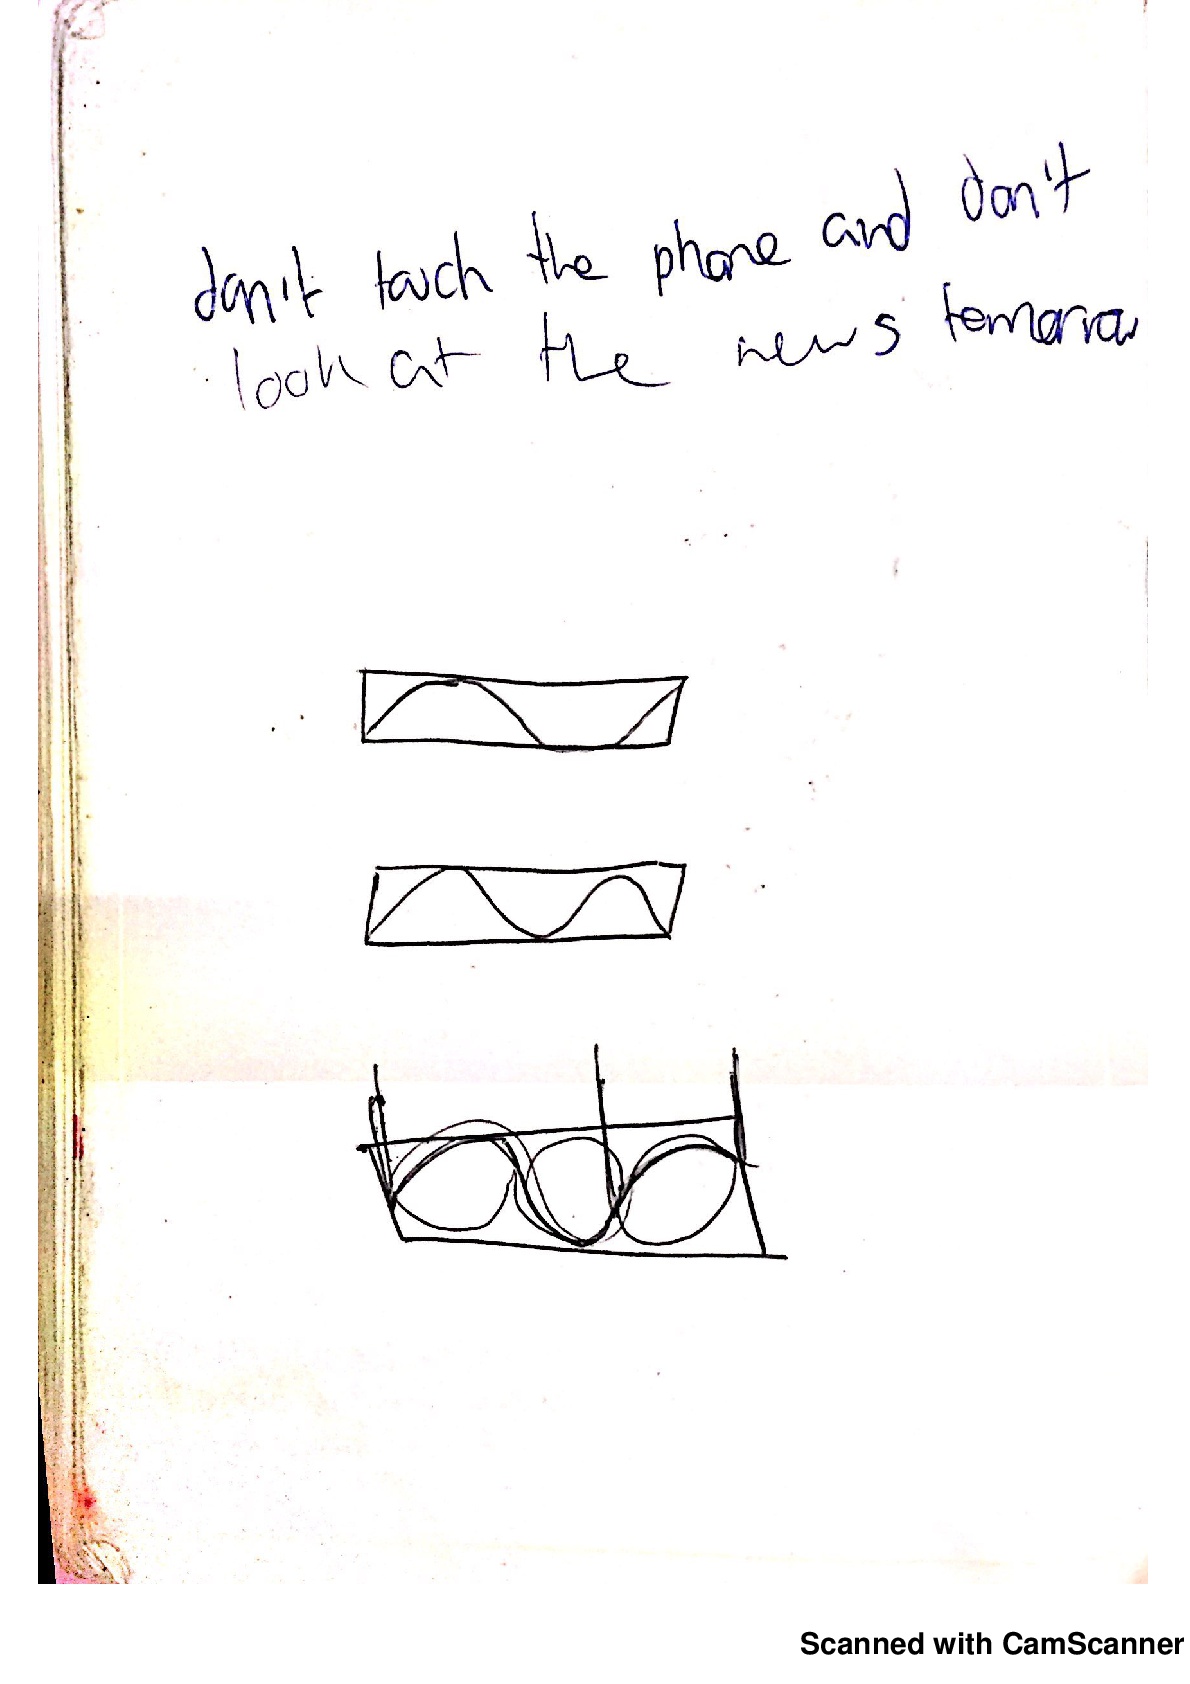 don't touch the phone and don't
look at the news temorrow
Scanned with CamScanner